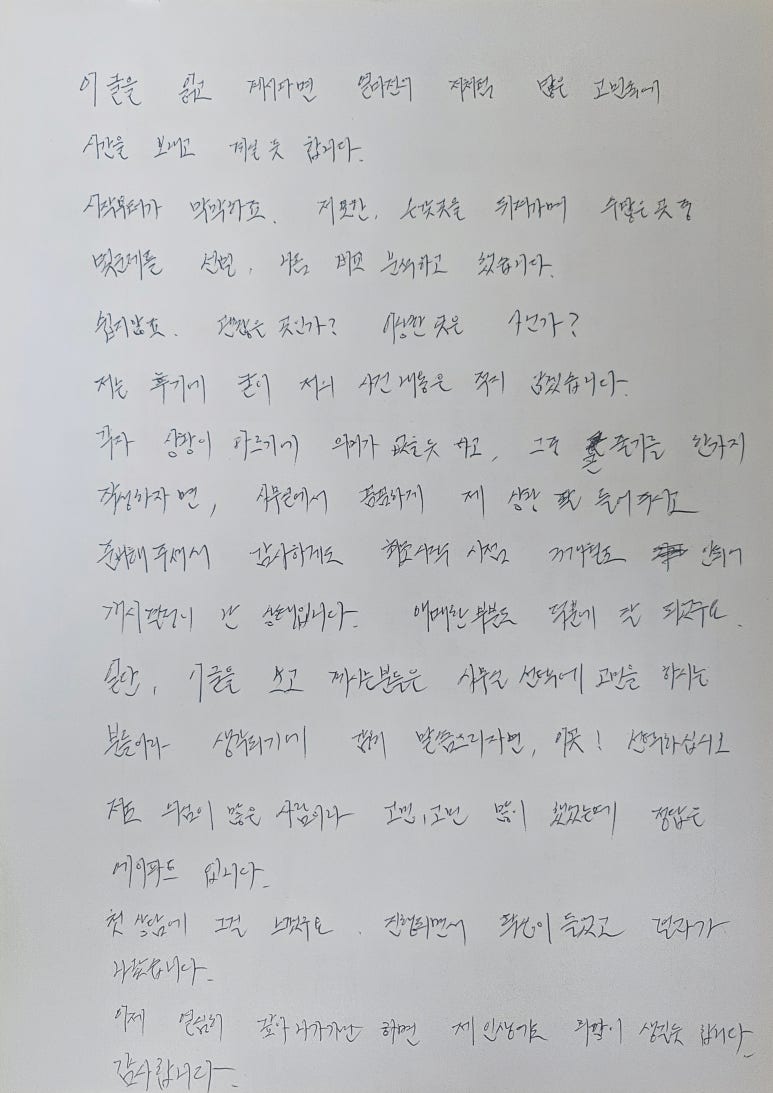 이 글을 읽고 계시다면 얼마전의 저처럼 많은 고민속에
시간을 보내고 계실 듯 합니다.
시작부터가 막막하죠. 저 또한, 온갖곳을 뒤져가며 수많은 곳 중
몇군데를 선별, 나름 비교 분석하고 했습니다.
쉽지않죠. 괜찮은 곳인가? 이상한 곳은 아닌가?
저는 후기에 굳이 저의 사건 내용은 적지 않겠습니다.
각자 상황이 다르기에 의미가 없을듯 하고, 그중 줄기를 한가지
작성하자면, 사무실에서 꼼꼼하게 제 상황 들어주시고
준비해 주셔서 감사하게도 최초시작 시점 안되어
개시결정이 난 상태입니다. 애매한 부분도 덕분에 잘 되고구요.
일단, 이글을 보고 계시는분들은 사무실 선택에 고민을 하시는
분들이라 생각되기에 감히 말씀드리자면, 이곳! 선택하십시오
저도 의심이 많은 사람이라 고민,고민 많이 했었는데 정답은
에이파트 입니다.
첫 상담에 그걸 느꼈구요. 진행되면서 확신이 들었고 결과가
나왔습니다.
이제 열심히 갚아 나가기만 하면 제 인생에도 희망이 생길듯 합니다
감사합니다.